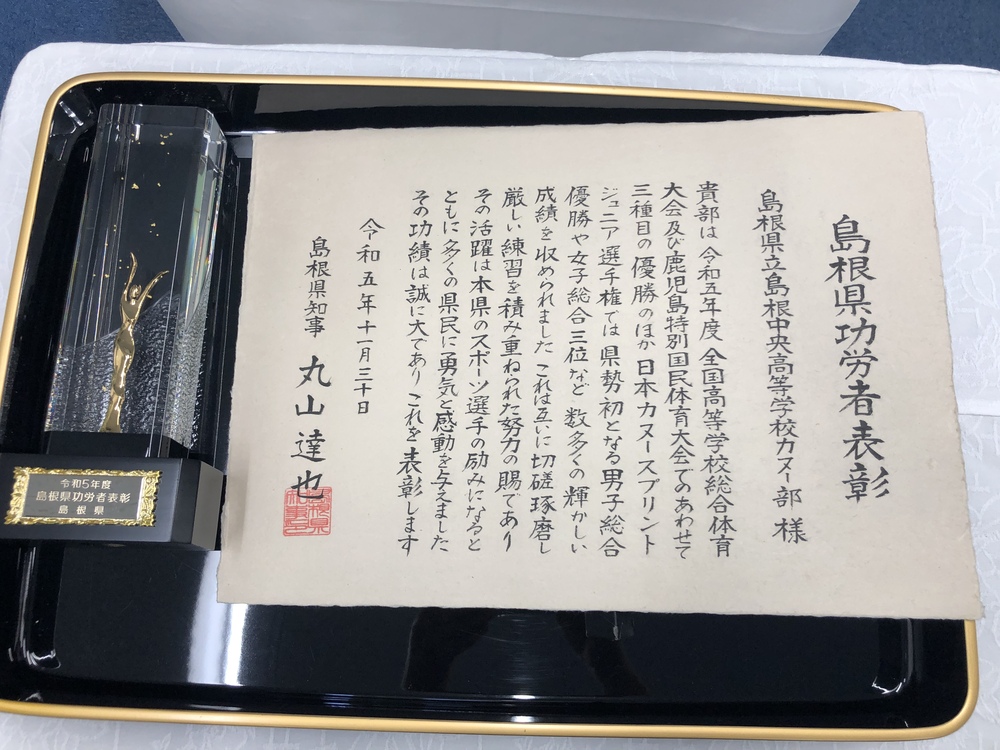 島根県功労者表彰
島根県立島根中央高等学校カヌー部 様
貴部は 令和五年度 全国高等学校総合体育
大会及び鹿児島特別国民体育大会であわせて
三種目の優勝のほか 日本カヌースプリント
ジュニア選手権では 県勢初となる男子総合
優勝や女子総合三位など 数多くの輝かしい
成績を収められました これは互いに切磋琢磨し
厳しい練習を積み重ねられた努力の賜であり
その活躍は本県のスポーツ選手の励みになると
ともに多くの県民に勇気と感動を与えました
その功績は誠に大であり これを表彰します
令和五年十一月三十日
島根県知事 丸山達也
令和5年度
島根県功労者表彰
島根県